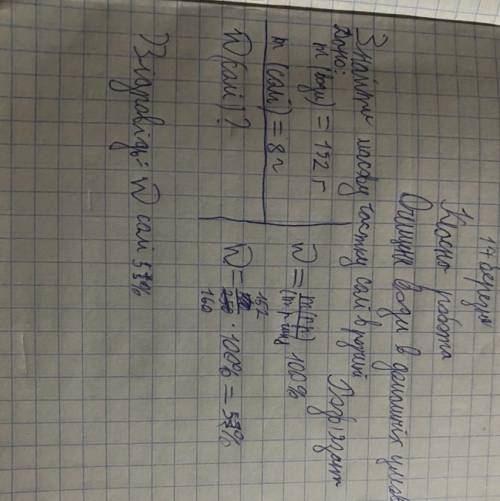 17 березня
Класна робота
Очищення води в домашніх умовах
Знайти масову частку солі в розчині
Дано:
m (води) = 152 г
m (солі) = 8 г
W (солі) ?
Розв'язання
W = m(р.р.) / m(р-ну) · 100%
W = 152 / 160 · 100% = 5%
Відповідь: W солі 5%